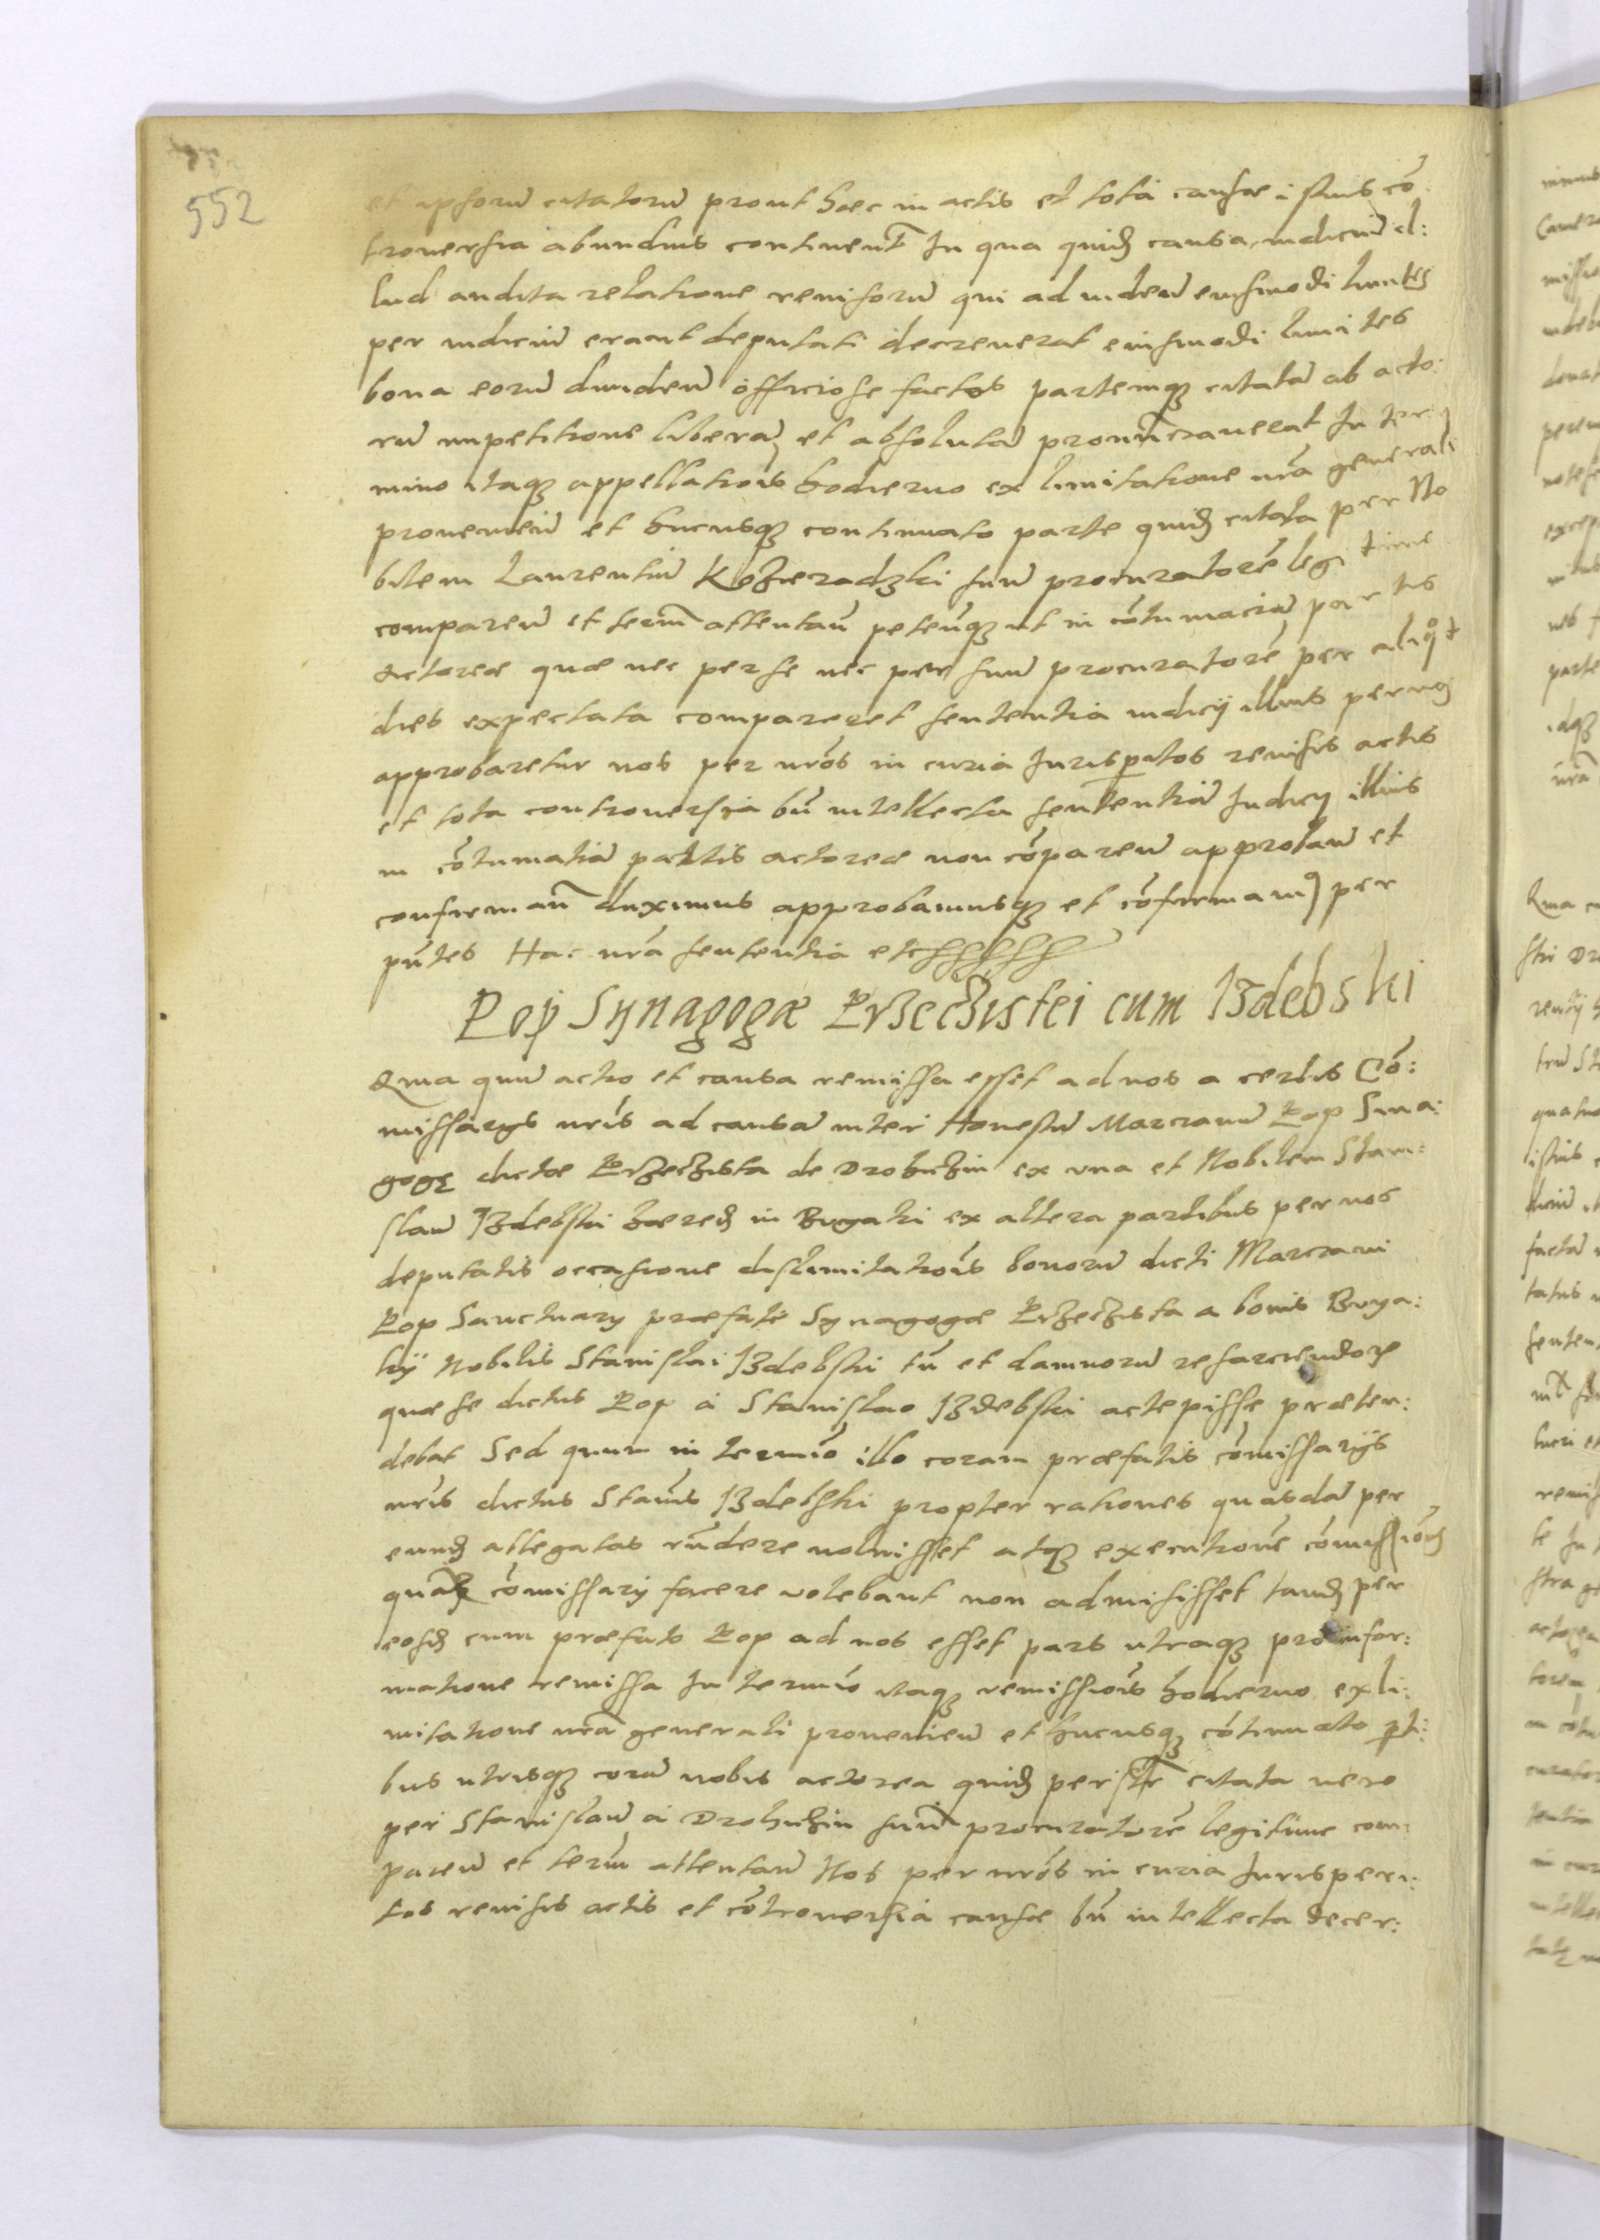 552
et ipsorū citatorū prout haec in actis et tota causae istius cō
troversia abundius continent̄ In qua quidē causa iudiciū il:
lud audita relatione revisorū qui ad videnū eiusmodi limites
per iudiciū erant deputati decreverat eiusmodi limites
bona eorū dividenū officiose factos partemq citatā ab acto:
rū impetitione liberā et absolutā pronūciaverat In ter
mino itaq appellationis hodierno ex limitatione nrā generali
provenienū et hucusq continuato parte quidē citata per No
bilem Laurentiū Kozieradzki suū procuratorē legitime
comparenū et termī attentanū petenūq ut in cōtumaciā partis
actoreae quae nec per se nec per suū procuratorē per aliqot
dies expectata compareret sententia iudicij illius per nos
approbaretur nos per nrōs in curia Jurisperitos revisis actis
et tota controversia bñ intellecta sententiā Judicij illius
in cōtumatiā partis actoreae non cōparenū approbanū et
confirmanū duximus approbamusq et cōfirmamus per
pūtes Hac nrā sententia etc
Pop Synagogae Przeczistei cum Izdebski
Quia quū actio et causa remissa esset ad nos a certis Cō:
missarijs nrīs ad causā inter Honestū Marcianū Pop Sina:
gogę dictae Przeczista de Drohiczin ex una et Nobilem Stani:
slaū Izdebski haeredē in Bugaki ex altera partibus per nos
deputatis occasione dislimitationis bonorū dicti Marciani
Pop Sanctuary praefate Synagogae Przeczista a bonis Buya:
ky Nobilis Stanislai Izdebski tū et damnorū resarciendorū
quae se dictus Pop a Stanislao Izdebski accepisse praeten:
debat Sed quum in termīo illo coram praefatis cōmissarijs
nrīs dictus Stanīs Izdebski propter rationes quasdā per
eundē allegatas rñdere noluisset atq executionē cōmissionis
quā cōmissarij facere volebant non admisisset tandē per
eosdē cum praefato Pop ad nos esset pars utraq pro infor:
matione remissa In termīo itaq remissionis hodierno ex li:
mitatione nrā generali provenienū et hucusq cōtinuato pti:
bus utrisq corā nobis actorea quidē per istr̄ citata vero
per Stanislaū a Drohiczin suū procuratorē legitime com:
parenū et termī attentanū Nos per nrōs in curia Jurisperi:
tos revisis actis et cōtroversia causae bñ intellecta decer: